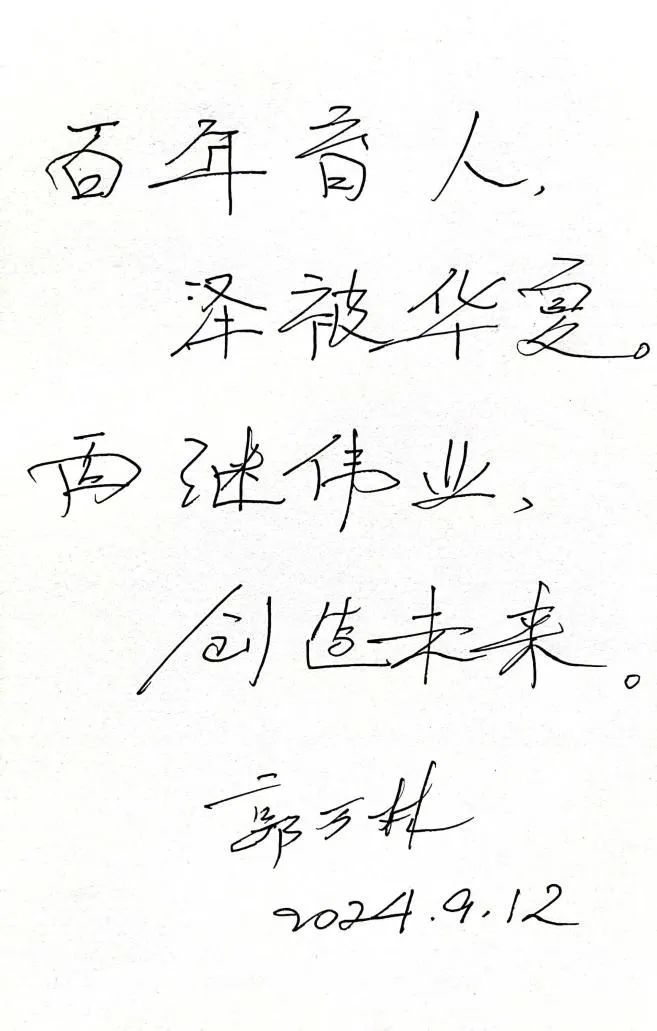 百年育人,
泽被华夏。
再继伟业、
创造未来。
郭万林
2024.9.12